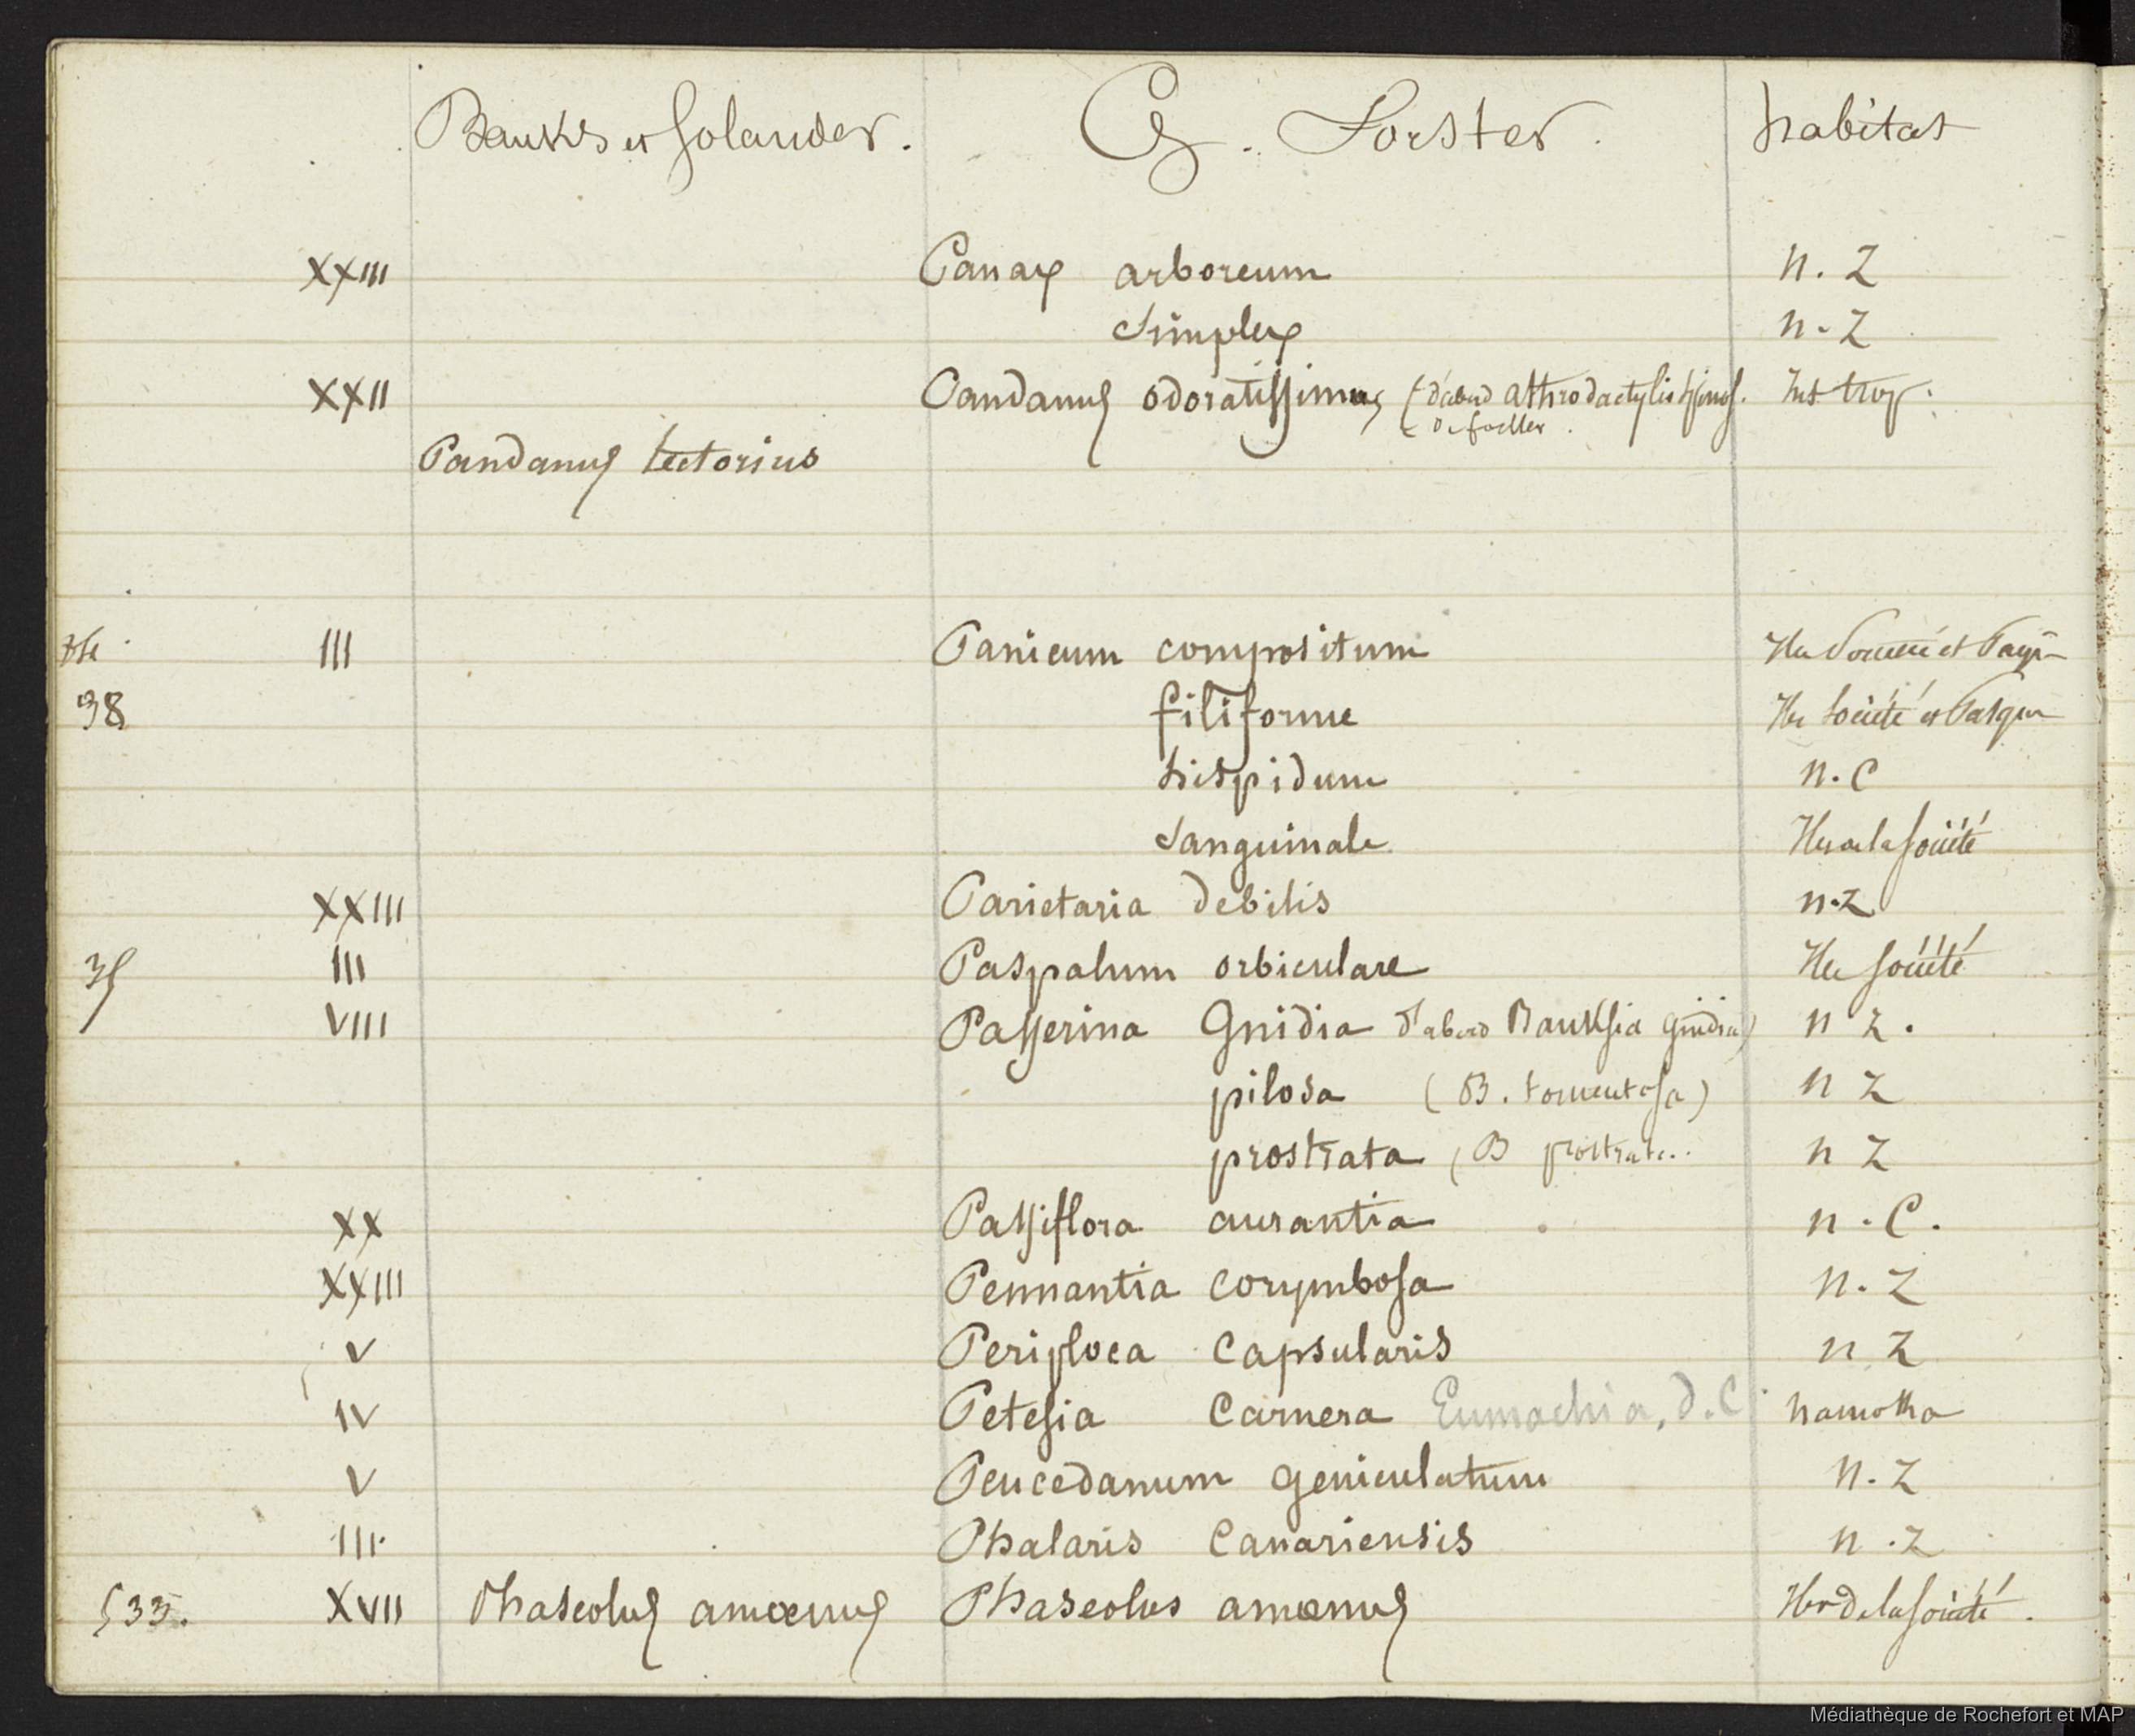 Banks et Solander. G. Forster. habitat
XXIII Panax arboreum n. Z
simplex n. Z
XXII Pandanus odoratissimus (d'abord athrodactylis spinos. Int trop.
de forster.
Pandanus tectorius
III Panicum compositum Iles et
38 filiforme Iles Société et
hispidum n. C
sanguinale Iles de la Société
XXIII Parietaria debilis n. z
III Paspalum orbiculare Iles Société
VIII Passerina Gnidia d'abord Banksia gnidia) n z.
pilosa (B. tomentosa) n z
prostrata (B prostrata.. n z
XX Passiflora aurantia n. C.
XXIII Pennantia corymbosa n. z
V Periploca capsularis n z
IV Petesia carnera Eumachia, d. C namotka
V Peucedanum geniculatum n. z
III Phalaris canariensis n. z
533. XVII Phaseolus amoenus Phaseolus amoenus Iles de la Société.
Médiathèque de Rochefort et MAP